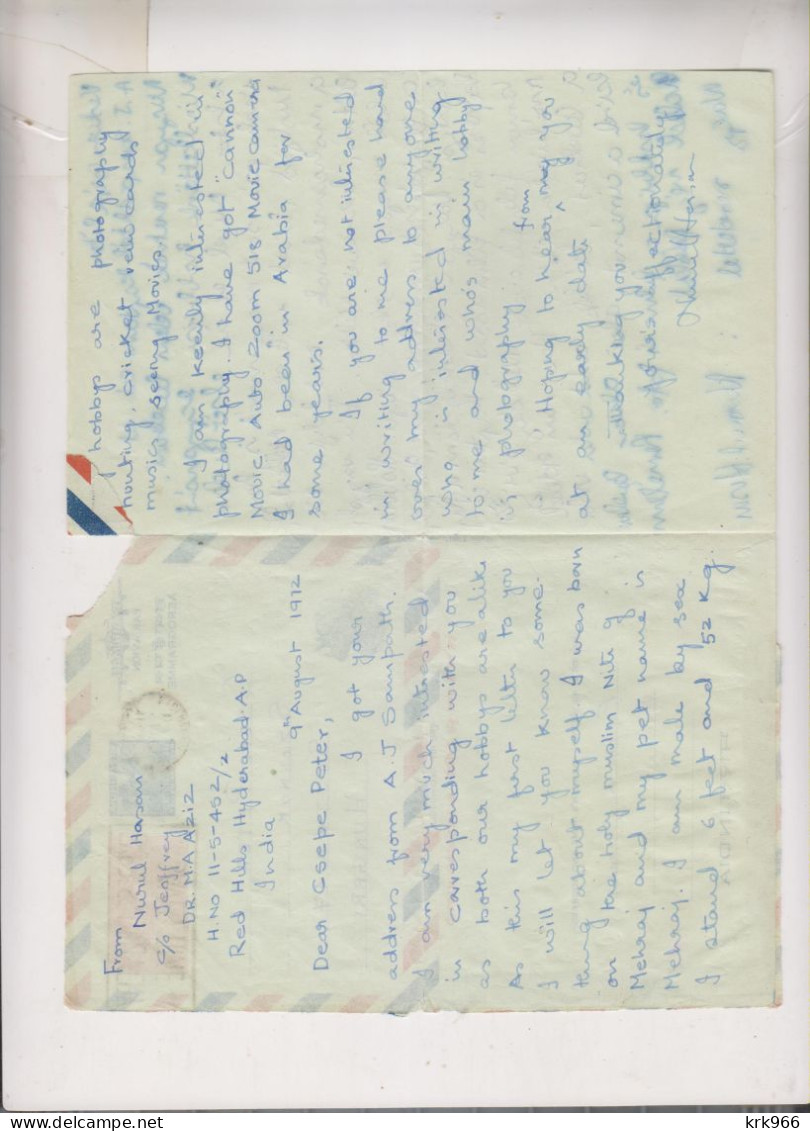 From
Nurul Hasan
c/o Jeoffrey
DR. M.A AZIZ
H.No 11-5-452/2
Red Hills Hyderabad A.P
India
9th August 1972
Dear Csepe Peter,
I got your
address from A.J Sampath.
I am very much intrested
in carresponding with you
as both our hobbys are alike
As this my first letter to you
I will let you know some-
thing about myself I was born
on the holy muslim Nite of
Mehraj and my pet name is
Mehraj. I am male by sex
I stand 6 feet and 52 Kg.
hobbys are photography
hunting, cricket, view cards
music, seeing Movies.
I am keenly interested in
photography. I have got "cannon"
Movie Auto Zoom 518 Movie camera
I had been in Arabia for
some years.
If you are not intrested
in writing to me please hand
over my address to anyone
who is intrested in writing
to me and who's main hobby
is photography
Hoping to hear from you
at an early date
Thanking you
yours affectionately
Nurul Hasan
krk966